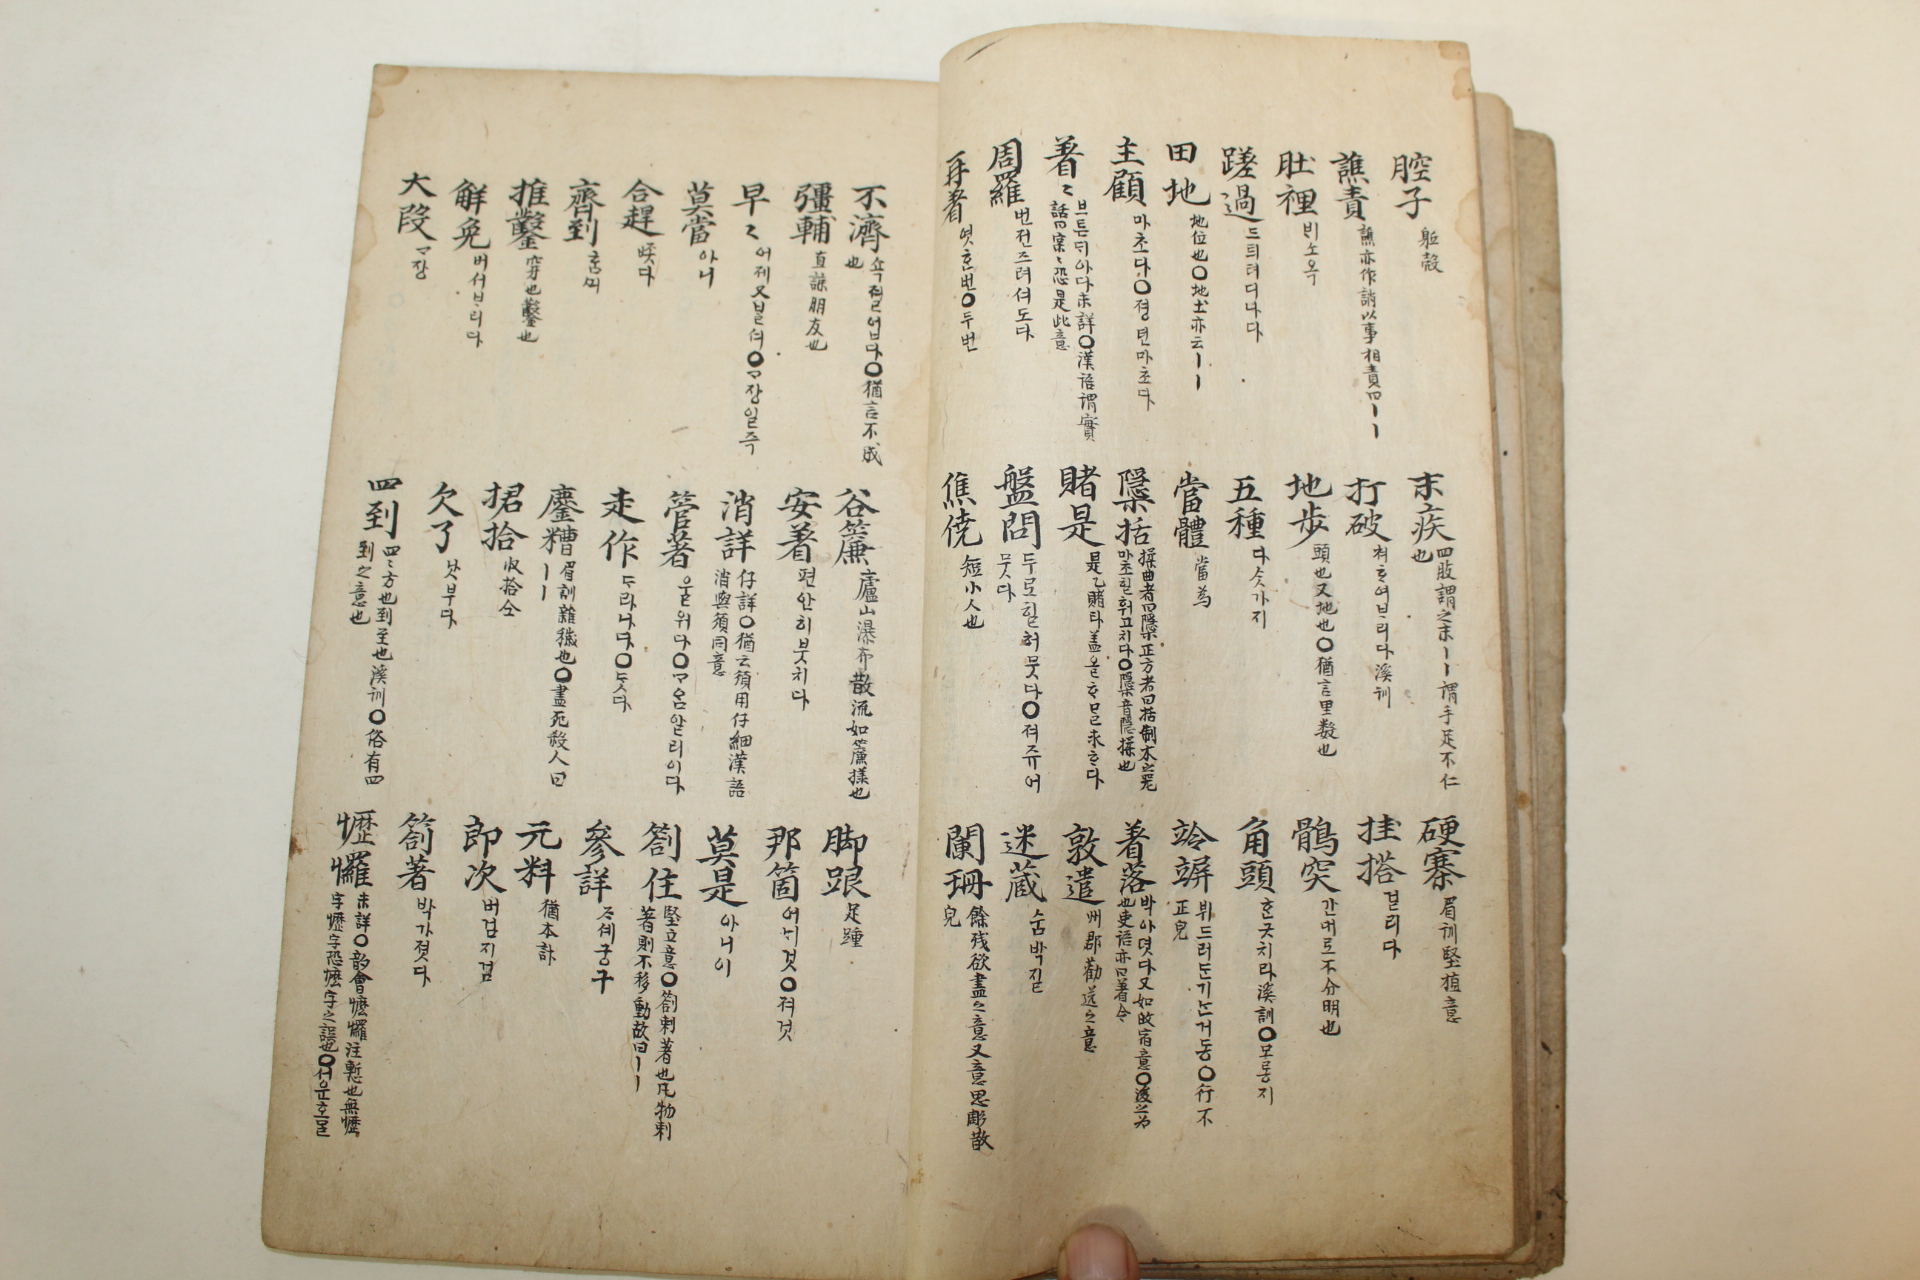 腔子 軀殼
末疾 四肢謂之末丨丨謂手足不仁也
硬寨 眉訓堅植意
譙責 譙亦作誚以事相責曰丨丨
打破 쳐ᄒᆞ여ᄇᆞ리다 溪訓
挂搭 걸리다
肚裡 ᄇᆡ소옥
地步 頭也又地也〇猶言里數也
鶻突 간대로不分明也
蹉過 드틔여디나다
五種 다ᄉᆞᆺ가지
角頭 ᄒᆞᆫ긋치라溪訓〇모롱지
田地 地位也〇地土亦云丨丨
當體 當為
竛竮 뷔드러ᄃᆞᆫ기ᄂᆞᆫ거동〇行不正皃
主顧 마초다〇뎡년마초다
檃括 揉曲者曰檃正方者曰括制木之器마초힐휘고치다〇檃音隱揉也
著落 박아뎟다又如歇宿意〇渡之為也吏語亦曰著令
著〻 브튼ᄃᆡ아다未詳〇漢語謂實話曰寔〻恐是此意
賭是 是乙賭타盖올ᄒᆞᄆᆞᆯ求ᄒᆞ다
敦遣 州郡勸送之意
周羅 번전즈려셔도다
盤問 두로힐허뭇다〇져쥬어뭇다
迷藏 숨박질
再著 엿ᄒᆞᆫ번〇두번
僬僥 短小人也
闌珊 餘残欲盡之意又意思彫散皃
不濟 쇽졀업다〇猶言不成也
谷簾 廬山瀑布散流如簾㨾也
脚跟 足踵
彊輔 直諒朋友也
安著 편안히붓치다
那箇 어ᄂᆡ것〇져것
早〻 어제又ᄇᆞᆯ셔〇ᄀᆞ장일즉
消詳 仔詳〇猶云須用仔細漢語消與須同意
莫是 아니이
莫當 아니
管著 ᄋᆞᆯ워다〇ᄀᆞᄋᆞᆷ알리이다
劄住 堅立意〇劄刺著也凡物刺著則不移動故曰丨丨
合趕
走作 ᄃᆞ라나다〇ᄃᆞᆺ다
參詳 ᄌᆞ셰궁구
齊到 ᄒᆞᆷᄭᅴ
鏖糟 眉訓雜穢也〇盡死殺人曰丨丨
元料 猶本計
推鑿 穿也鑿也
捃拾 收拾仝
即次 버검지검
解免 버서ᄇᆞ리다
欠了 낫부다
劄著 박가졋다
大段 ᄀᆞ장
四到 四〻方也到至也溪訓〇俗有四到之意也
懡㦬 未詳〇韵會懡㦬注慙也無